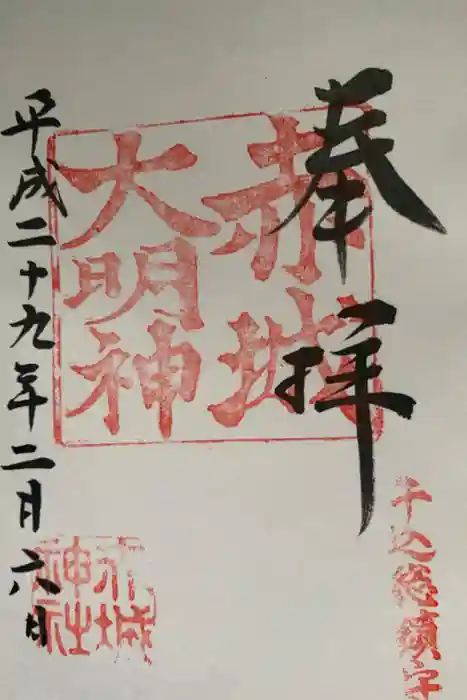 奉拝
赤城
大明神
牛込総鎮守
赤城
神社
平成二十九年二月六日